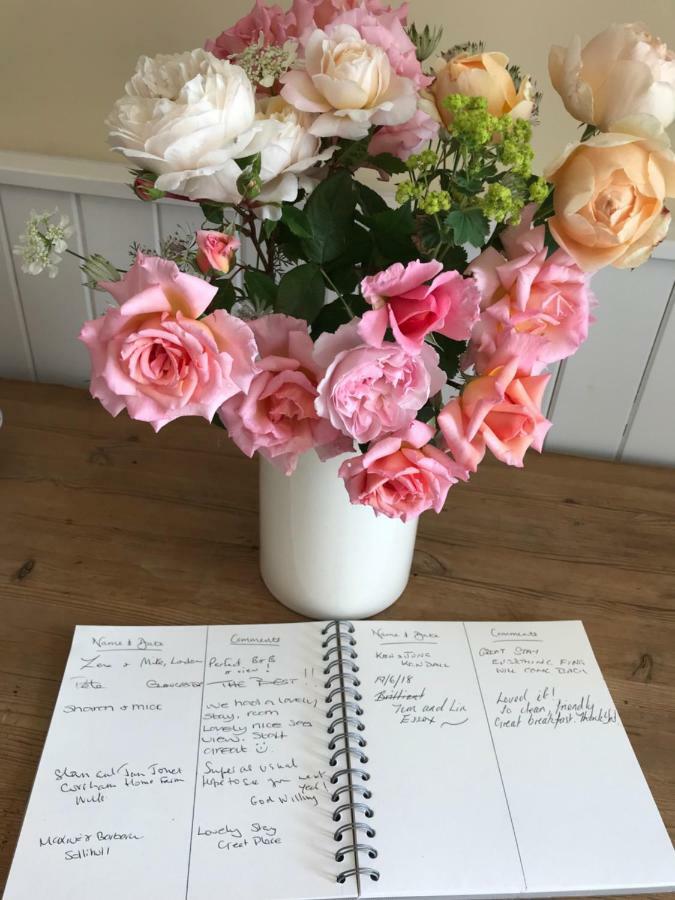 Name & Date
Comments
Zara & Mike, London
Perfect B&B & view!
Pete Gloucester
THE BEST!!
Sharon & Mick
We had a lovely
stay, room
lovely nice sea
view. Staff
great
Stan and Jan Jones
Corsham Home Farm
Wilts
Super as usual
Hope to see you next
year!
God Willing
& Barbara
Solihull
Lovely Stay
Great Place
Name & Date
Comments
KEN & JUNE
KENDALL
GREAT STAY
EVERYTHING FINE
WILL COME BACK
19/6/18
Tim and Lin
Essex
Loved it!
So clean, friendly
Great breakfast. Thanks